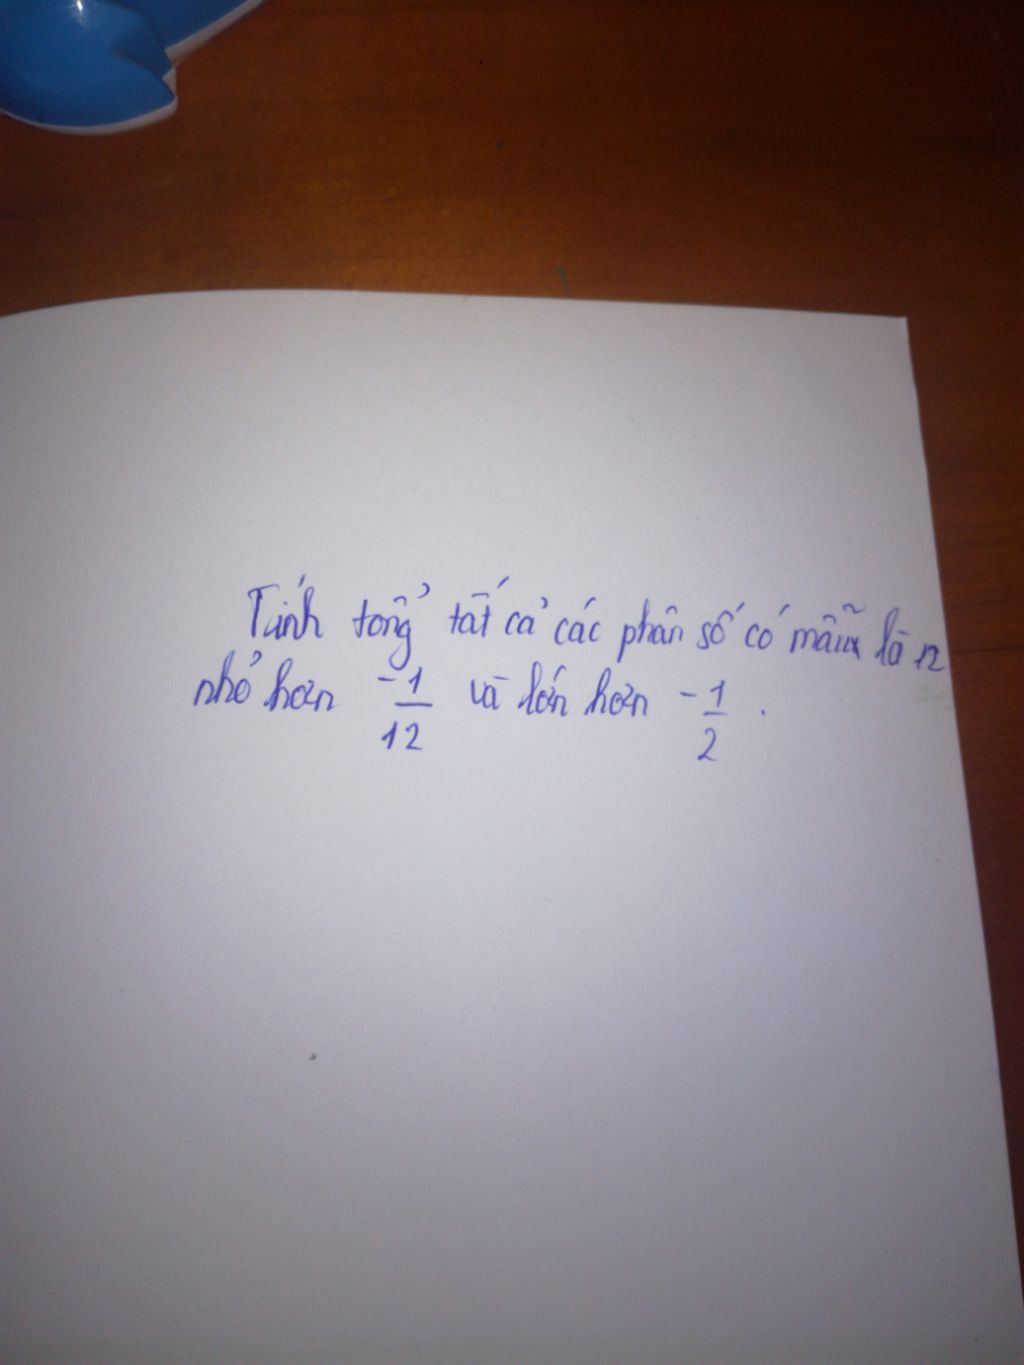 Tính tổng tất cả các phân số có mẫu là 12
nhỏ hơn -1/12 và lớn hơn -1/2 .